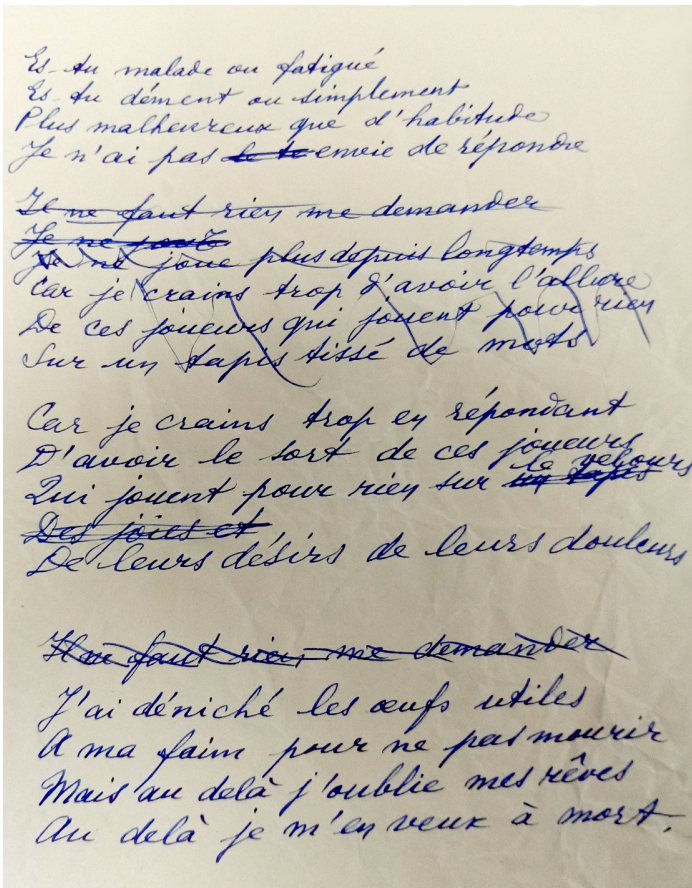 Es-tu malade ou fatigué
Es-tu dément ou simplement
Plus malheureux que d'habitude
Je n'ai pas le te envie de répondre
Il ne faut rien me demander
Je ne joue
Je ne joue plus depuis longtemps
Car je crains trop d'avoir l'allure
De ces joueurs qui jouent pour rien
Sur un tapis tissé de mots
Car je crains trop en répondant
D'avoir le sort de ces joueurs
le velours
Qui jouent pour rien sur un tapis
Des joies et
De leurs désirs de leurs douleurs
Il ne faut rien me demander
J'ai déniché les œufs utiles
A ma faim pour ne pas mourir
Mais au delà j'oublie mes rêves
Au delà je m'en veux à mort.